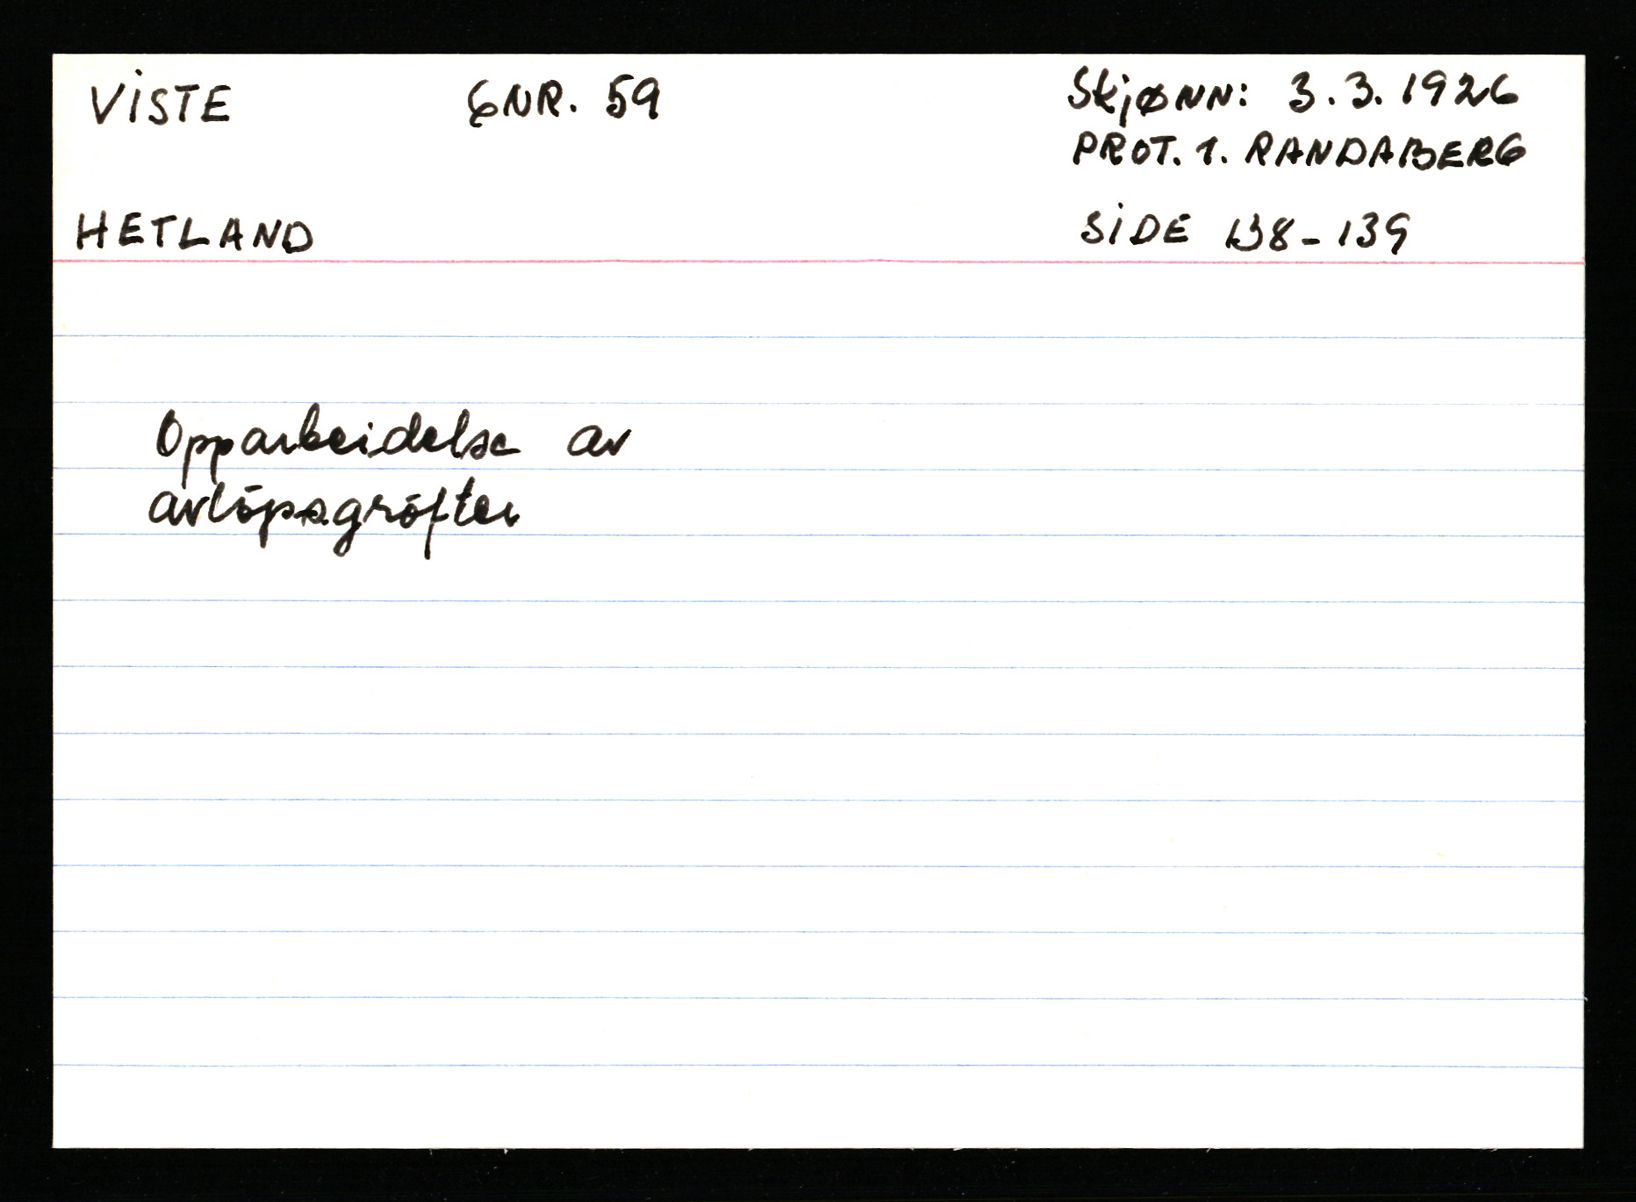 VISTE GNR. 59 Skjønn: 3.3.1926
PROT. 1. RANDABERG
HETLAND SIDE 138-139
Opparbeidelse av
avlöpsgröfter